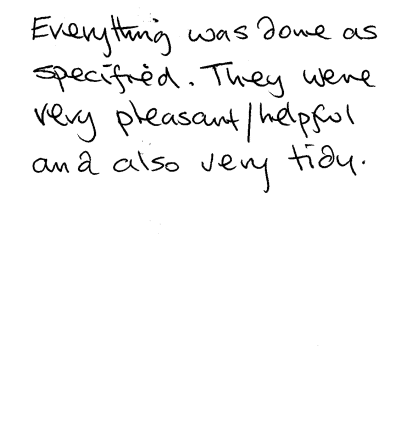 Everything was done as
specified. They were
very pleasant/helpful
and also very tidy.